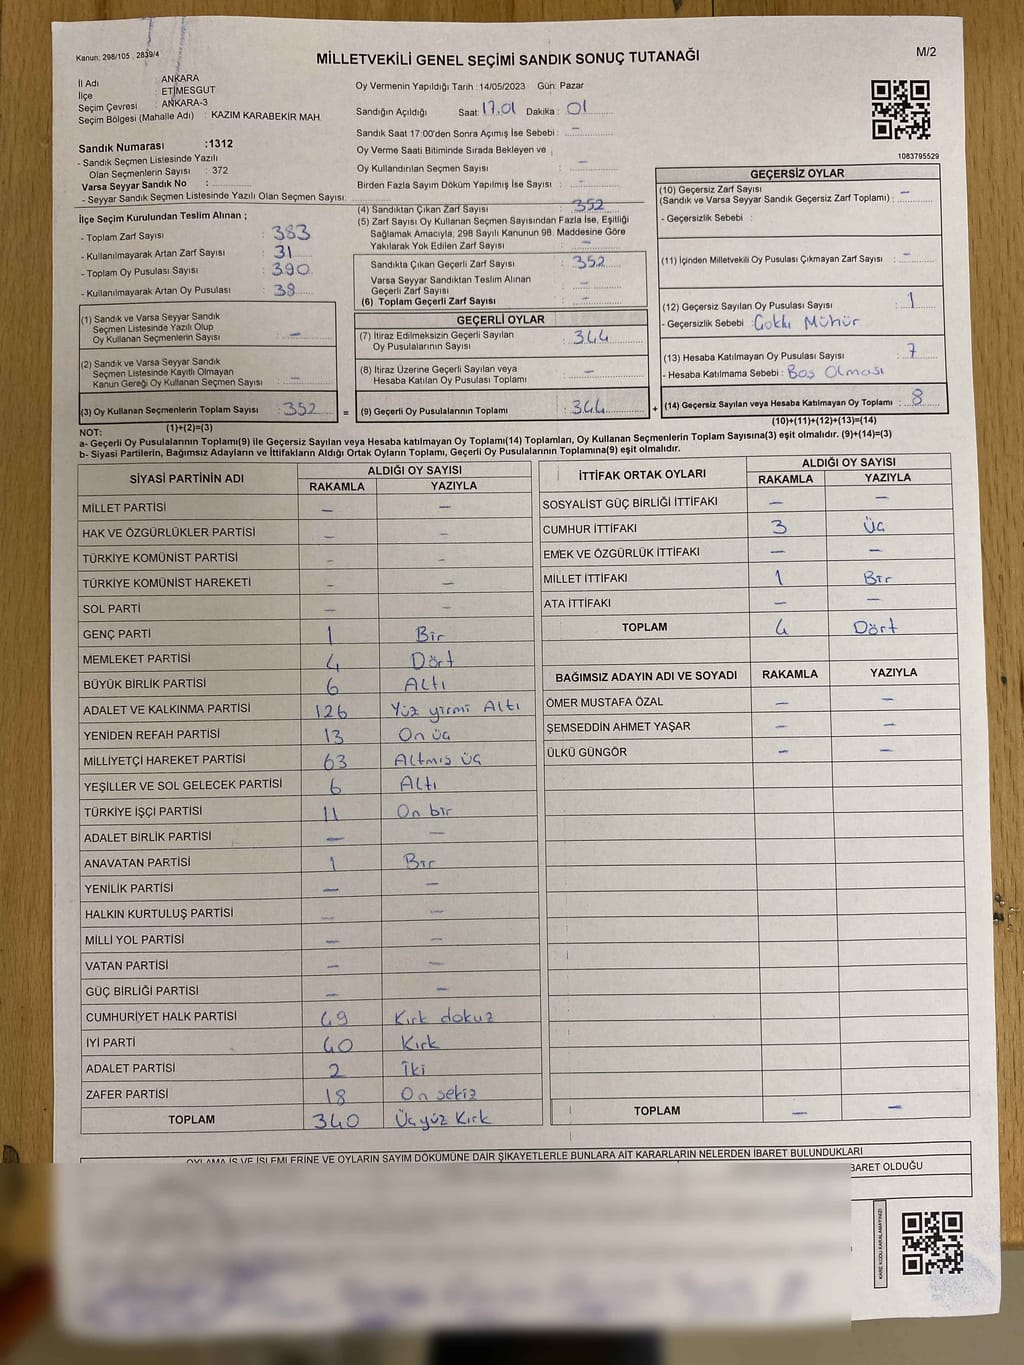 Kanun; 298/105 , 2839/4
MİLLETVEKİLİ GENEL SEÇİMİ SANDIK SONUÇ TUTANAĞI
M/2
İl Adı : ANKARA
İlçe : ETİMESGUT
Seçim Çevresi : ANKARA-3
Seçim Bölgesi (Mahalle Adı) : KAZIM KARABEKİR MAH.
Sandık Numarası :1312
- Sandık Seçmen Listesinde Yazılı
Olan Seçmenlerin Sayısı : 372
Varsa Seyyar Sandık No :
- Seyyar Sandık Seçmen Listesinde Yazılı Olan Seçmen Sayısı:
Oy Vermenin Yapıldığı Tarih : 14/05/2023 Gün: Pazar
Sandığın Açıldığı Saat: 17.01 Dakika : 01
Sandık Saat 17:00'den Sonra Açımış İse Sebebi : –
Oy Verme Saati Bitiminde Sırada Bekleyen ve
Oy Kullandırılan Seçmen Sayısı : –
Birden Fazla Sayım Döküm Yapılmış İse Sayısı : –
1083795529
İlçe Seçim Kurulundan Teslim Alınan ;
- Toplam Zarf Sayısı : 383
- Kullanılmayarak Artan Zarf Sayısı : 31
- Toplam Oy Pusulası Sayısı : 390
- Kullanılmayarak Artan Oy Pusulası : 38
(1) Sandık ve Varsa Seyyar Sandık
Seçmen Listesinde Yazılı Olup
Oy Kullanan Seçmenlerin Sayısı : –
(2) Sandık ve Varsa Seyyar Sandık
Seçmen Listesinde Kayıtlı Olmayan
Kanun Gereği Oy Kullanan Seçmen Sayısı : –
(3) Oy Kullanan Seçmenlerin Toplam Sayısı : 352 =
(1)+(2)=(3)
(4) Sandıktan Çıkan Zarf Sayısı : 352
(5) Zarf Sayısı Oy Kullanan Seçmen Sayısından Fazla İse, Eşitliği
Sağlamak Amacıyla, 298 Sayılı Kanunun 98. Maddesine Göre
Yakılarak Yok Edilen Zarf Sayısı : –
Sandıkta Çıkan Geçerli Zarf Sayısı : 352
Varsa Seyyar Sandıktan Teslim Alınan
Geçerli Zarf Sayısı : –
(6) Toplam Geçerli Zarf Sayısı : –
GEÇERLİ OYLAR
(7) İtiraz Edilmeksizin Geçerli Sayılan
Oy Pusulalarının Sayısı : 344
(8) İtiraz Üzerine Geçerli Sayılan veya
Hesaba Katılan Oy Pusulası Toplamı : –
(9) Geçerli Oy Pusulalarının Toplamı : 344 +
GEÇERSİZ OYLAR
(10) Geçersiz Zarf Sayısı
(Sandık ve Varsa Seyyar Sandık Geçersiz Zarf Toplamı) : –
- Geçersizlik Sebebi :
(11) İçinden Milletvekili Oy Pusulası Çıkmayan Zarf Sayısı : –
(12) Geçersiz Sayılan Oy Pusulası Sayısı : 1
- Geçersizlik Sebebi : Çoklu Mühür
(13) Hesaba Katılmayan Oy Pusulası Sayısı : 7
- Hesaba Katılmama Sebebi : Boş Olması
(14) Geçersiz Sayılan veya Hesaba Katılmayan Oy Toplamı : 8
(10)+(11)+(12)+(13)=(14)
NOT:
a- Geçerli Oy Pusulalarının Toplamı(9) ile Geçersiz Sayılan veya Hesaba katılmayan Oy Toplamı(14) Toplamları, Oy Kullanan Seçmenlerin Toplam Sayısına(3) eşit olmalıdır. (9)+(14)=(3)
b- Siyasi Partilerin, Bağımsız Adayların ve İttifakların Aldığı Ortak Oyların Toplamı, Geçerli Oy Pusulalarının Toplamına(9) eşit olmalıdır.
SİYASİ PARTİNİN ADI ALDIĞI OY SAYISI
RAKAMLA YAZIYLA
MİLLET PARTİSİ – –
HAK VE ÖZGÜRLÜKLER PARTİSİ – –
TÜRKİYE KOMÜNİST PARTİSİ – –
TÜRKİYE KOMÜNİST HAREKETİ – –
SOL PARTİ – –
GENÇ PARTİ 1 Bir
MEMLEKET PARTİSİ 4 Dört
BÜYÜK BİRLİK PARTİSİ 6 Altı
ADALET VE KALKINMA PARTİSİ 126 Yüz yirmi Altı
YENİDEN REFAH PARTİSİ 13 On üç
MİLLİYETÇİ HAREKET PARTİSİ 63 Altmış üç
YEŞİLLER VE SOL GELECEK PARTİSİ 6 Altı
TÜRKİYE İŞÇİ PARTİSİ 11 On bir
ADALET BİRLİK PARTİSİ – –
ANAVATAN PARTİSİ 1 Bir
YENİLİK PARTİSİ – –
HALKIN KURTULUŞ PARTİSİ – –
MİLLİ YOL PARTİSİ – –
VATAN PARTİSİ – –
GÜÇ BİRLİĞİ PARTİSİ – –
CUMHURİYET HALK PARTİSİ 49 Kırk dokuz
İYİ PARTİ 40 Kırk
ADALET PARTİSİ 2 İki
ZAFER PARTİSİ 18 On sekiz
TOPLAM 340 Üçyüz Kırk
İTTİFAK ORTAK OYLARI ALDIĞI OY SAYISI
RAKAMLA YAZIYLA
SOSYALİST GÜÇ BİRLİĞİ İTTİFAKI – –
CUMHUR İTTİFAKI 3 Üç
EMEK VE ÖZGÜRLÜK İTTİFAKI – –
MİLLET İTTİFAKI 1 Bir
ATA İTTİFAKI – –
TOPLAM 4 Dört
BAĞIMSIZ ADAYIN ADI VE SOYADI RAKAMLA YAZIYLA
ÖMER MUSTAFA ÖZAL – –
ŞEMSEDDİN AHMET YAŞAR – –
ÜLKÜ GÜNGÖR – –
TOPLAM – –
OYLAMA İŞ VE İŞLEMLERİNE VE OYLARIN SAYIM DÖKÜMÜNE DAİR ŞİKAYETLERLE BUNLARA AİT KARARLARIN NELERDEN İBARET BULUNDUKLARI
BARET OLDUĞU
KARE KODU KARALAMAYINIZ!